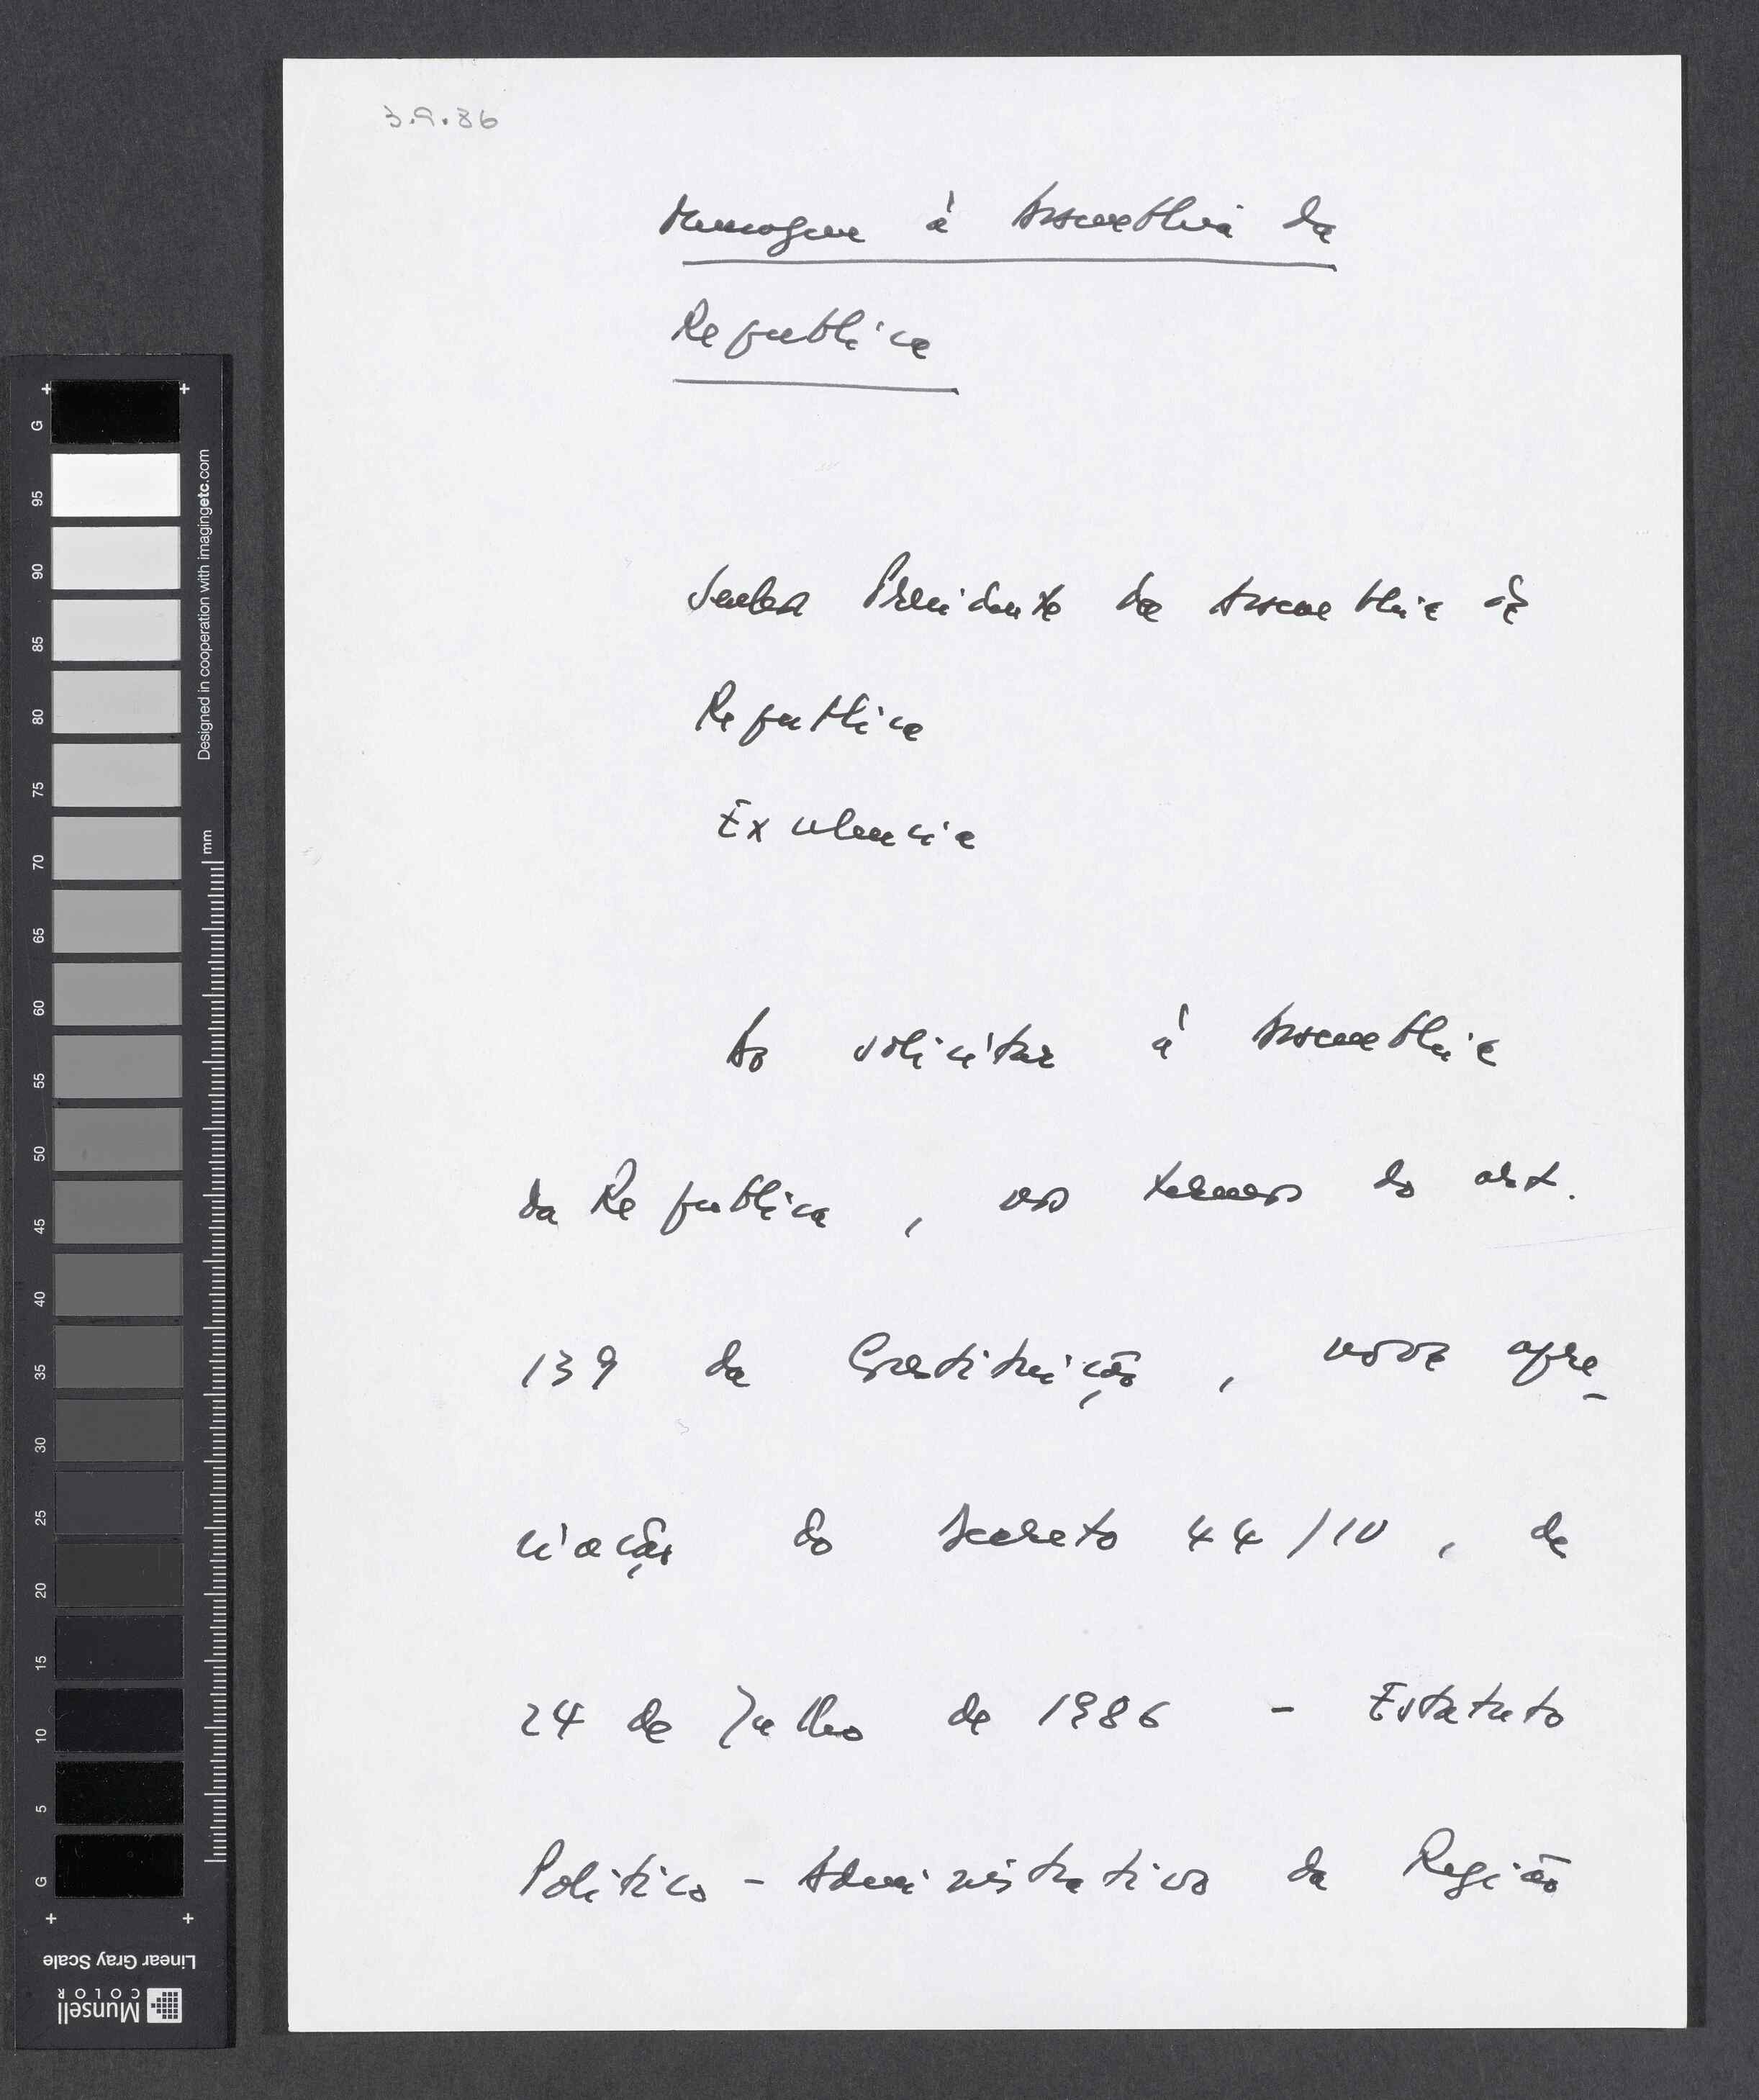 3.9.86
Mensagem à Assembleia da
República
Senhor Presidente da Assembleia da
República
Excelencia
Ao solicitar à Assembleia
da República, nos termos do art.
139 da Constituição, nova apre-
ciação do Decreto 44/IV, de
24 de Julho de 1986 - Estatuto
Politico-Administrativo da Região
G 95 90 85 80 75 70 65 60 55 50 45 40 35 30 25 20 15 10 5 G
Designed in cooperation with imagingetc.com
mm
Linear Gray Scale
Munsell
COLOR